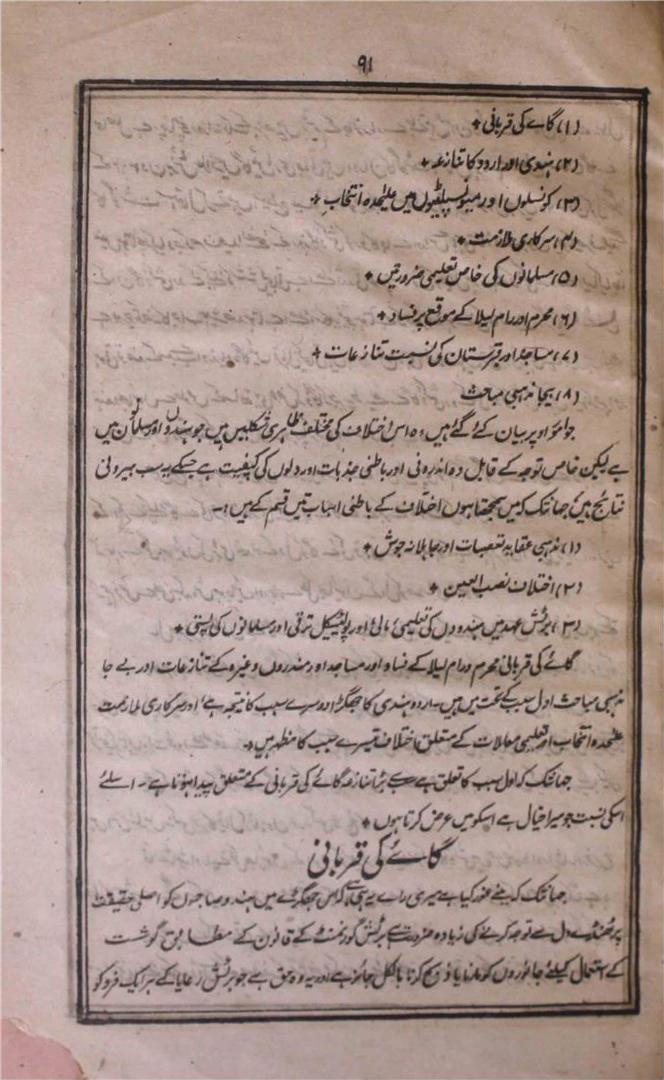 ۹۱
(۱) گائے کی قربانی +
(۲) ہندی اور اردو کا تنازعہ +
(۳) کونسلوں اور میونسپلٹیوں میں علیٰحدہ انتخاب +
(۴) سرکاری ملازمت +
(۵) مسلمانوں کی خاص تعلیمی ضرورتیں +
(۶) محرم اور رام لیلا کے موقع پر فساد +
(۷) مساجد اور قبرستان کی نسبت تنازعات +
(۸) بیجا مذہبی مباحث
جو امور اوپر بیان کئے گئے ہیں، وہ اس اختلاف کی مختلف ظاہری شکلیں ہیں جو ہندوں اور مسلمانوں میں
ہے لیکن خاص توجہ کے قابل وہ اندرونی اور باطنی جذبات اور دلوں کی کیفیت ہے جسکے یہ سب بیرونی
نتائج ہیں، جہانتک کہ میں سمجھتا ہوں اختلاف کے باطنی اسباب تین قسم کے ہیں :-
(۱) مذہبی عقاید تعصبات اور جاہلانہ جوش +
(۲) اختلاف نصب العین +
(۳) برٹش عہد میں ہندووں کی تعلیمی، مالی، اور پولیٹیکل ترقی اور مسلمانوں کی پستی +
گائے کی قربانی محرم و رام لیلا کے فساد اور مساجد اور مندروں وغیرہ کے تنازعات اور بے جا
مذہبی مباحث اول سبب کے تحت میں ہیں۔ اردو ہندی کا جھگڑا دوسرے سبب کا نتیجہ ہے، اور سرکاری ملازمت
علیحدہ انتخاب اور تعلیمی معاملات کے متعلق اختلاف تیسرے سبب کا مظہر ہیں۔
جہانتک کہ اول سبب کا تعلق ہے سب سے بڑا تنازعہ گائے کی قربانی کے متعلق پیدا ہوتا ہے۔ اسلئے
اسکی نسبت جو میرا خیال ہے اسکو میں عرض کرتا ہوں +
گائے کی قربانی
جہانتک کہ میں نے غور کیا ہے میری رائے یہ ہی کہ اس جھگڑے میں ہندو صاحبوں کو اصلی حقیقت
پر ٹھنڈے دل سے توجہ کرنے کی زیادہ ضرورت ہے برٹش گورنمنٹ کے قانون کے مطابق گوشت
کے استعمال کیلئے جانوروں کو مارنا یا ذبح کرنا بالکل جائز ہے اور یہ وہ حق ہے جو برٹش رعایا کے ہر ایک فرد کو